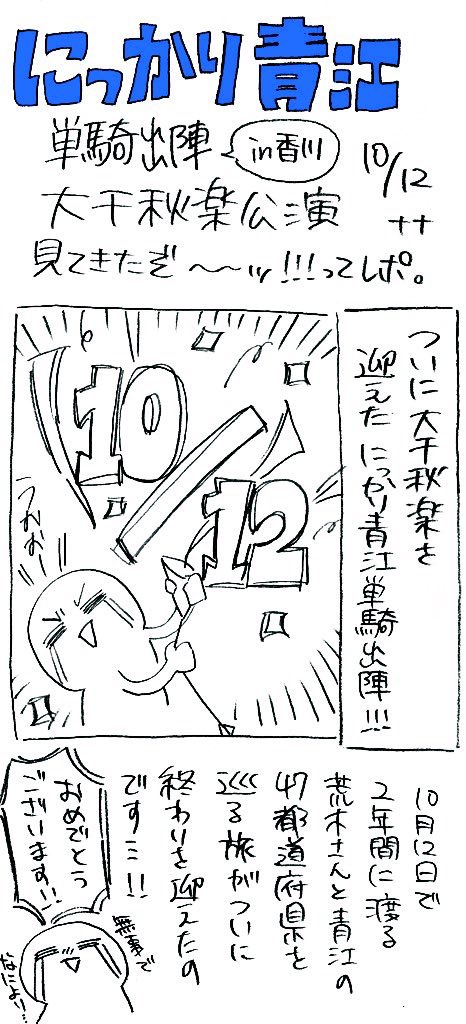 にっかり青江
単騎出陣
in香川
10/12
大千秋楽公演
++
見てきたぞ〜〜ッ!!!ってレポ。
ついに大千秋楽を
迎えた にっかり青江単騎出陣!!!
10/12
うおお
10月12日で
2年間に渡る
荒木さんと青江の
47都道府県を
巡る旅がついに
終わりを迎えたの
です…!!
おめでとう
ございます!!
無事で
なにより…